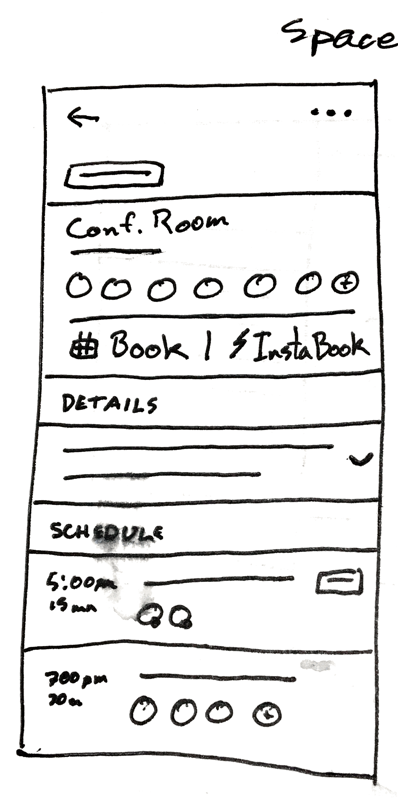 Space
Conf. Room
Book | InstaBook
DETAILS
SCHEDULE
5:00pm
15 min
7:00 pm